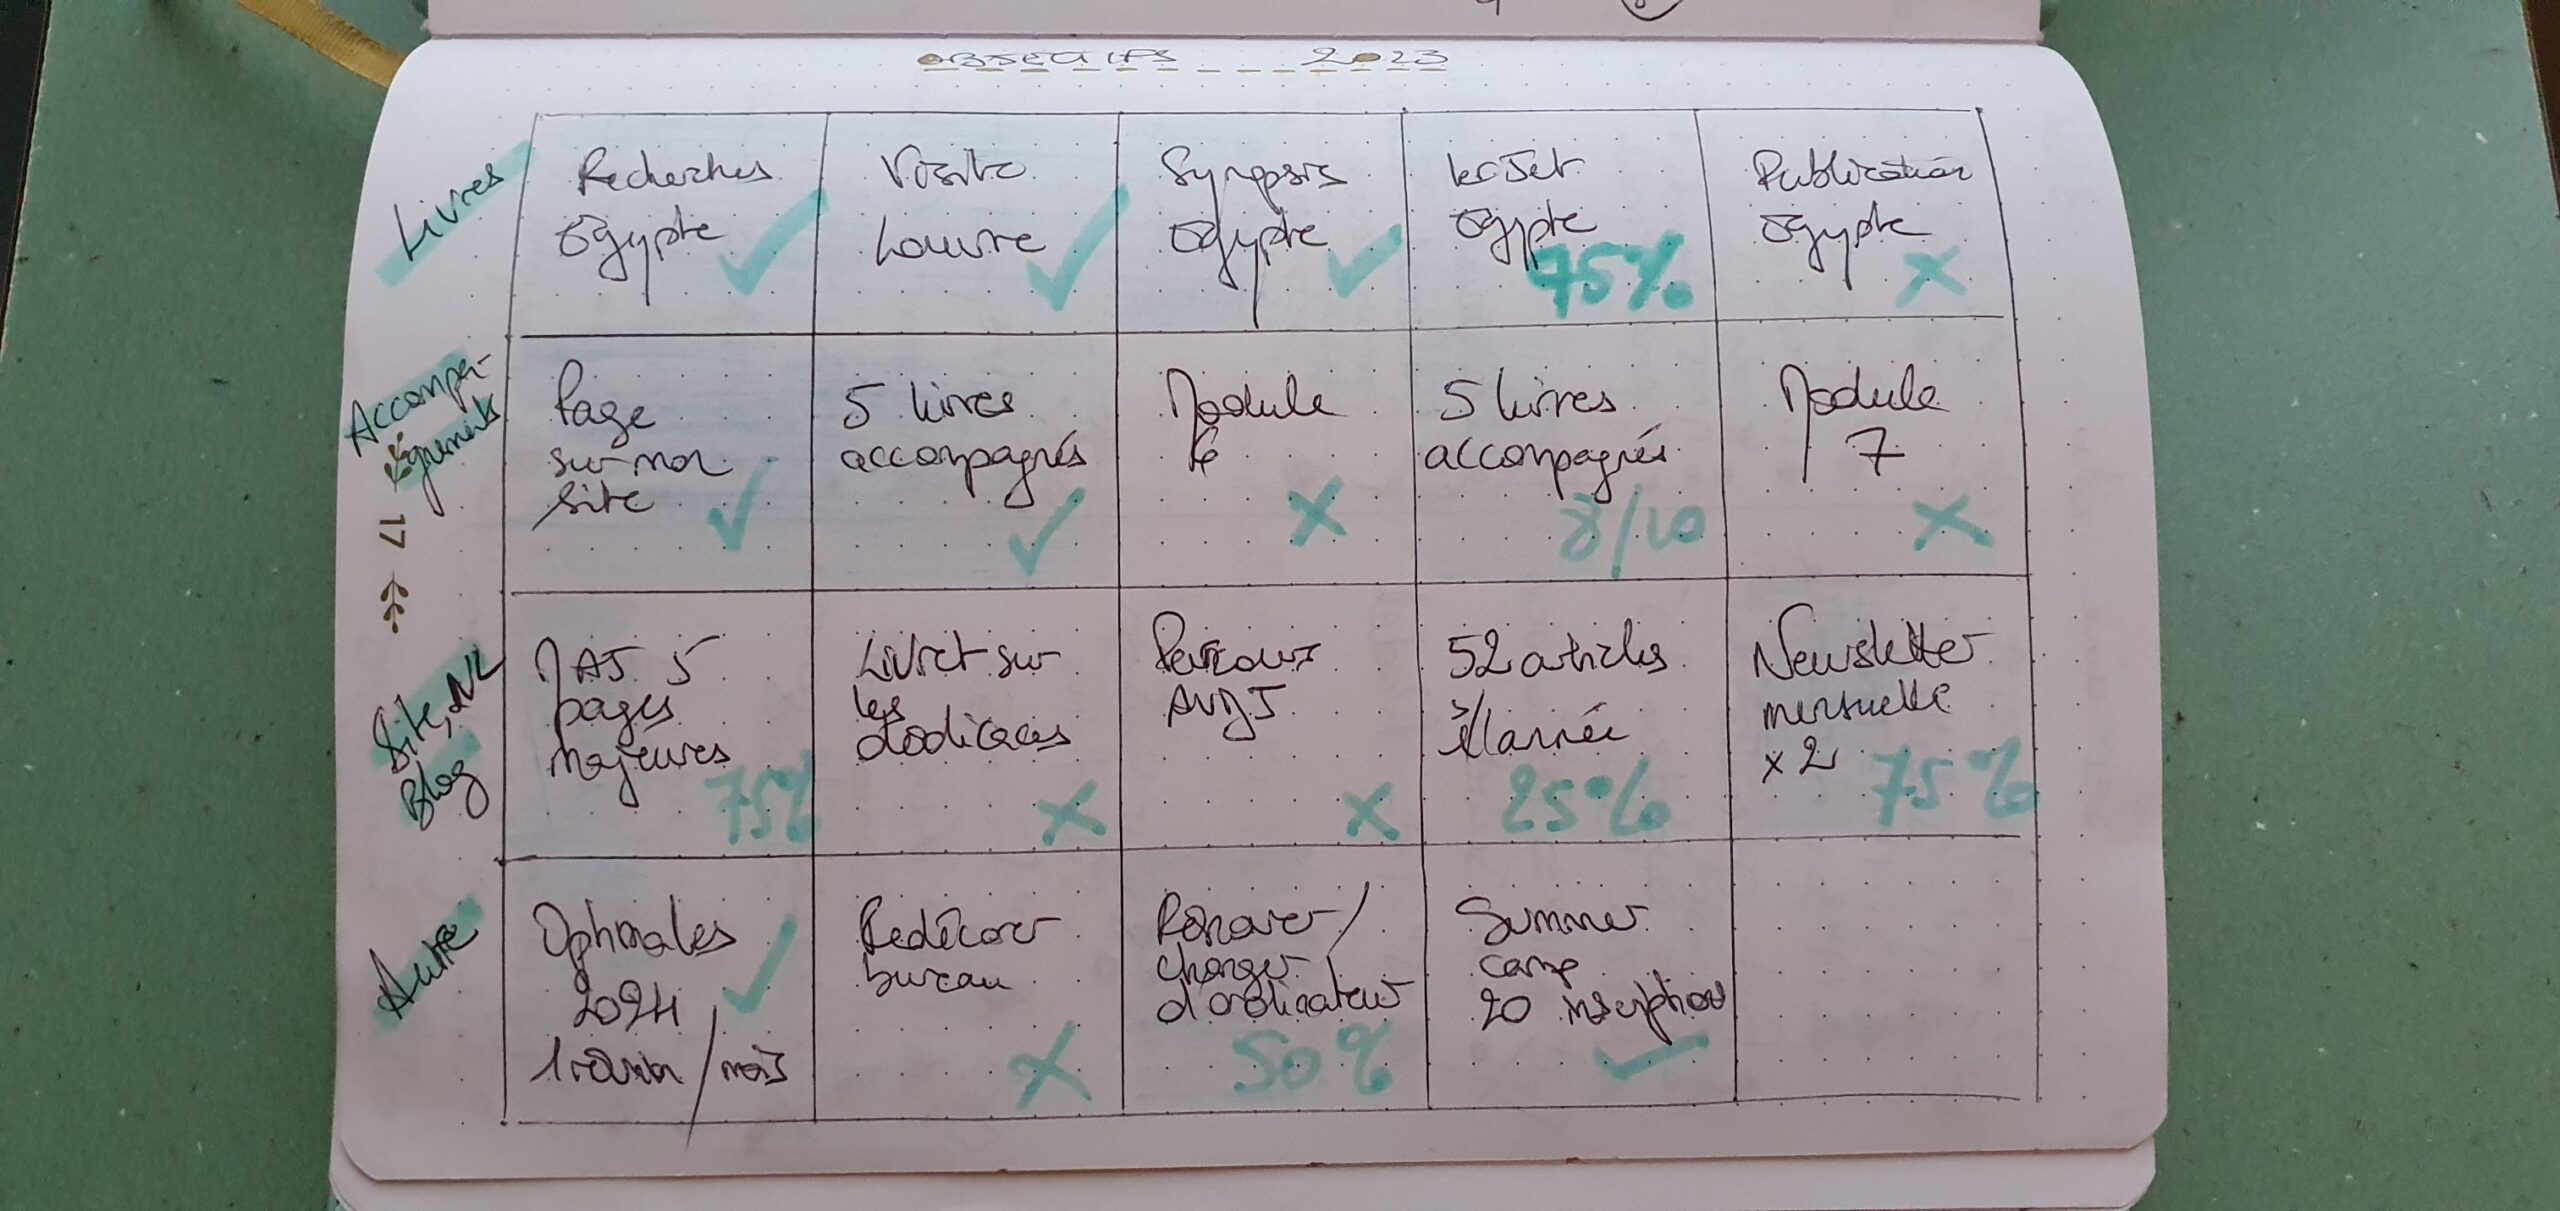 OBJECTIFS 2023
Livres
Recherches
Égypte ✓
Visite
Louvre ✓
Synopsis
Égypte ✓
1er Jet
Égypte
75%
Publication
Égypte
X
Accompa-
gnements
Page
sur mon
site ✓
5 livres
accompagnés
✓
Module
6
X
5 livres
accompagnés
8/10
Module
7
X
17
Site, NL
Blog
MAJ 5
pages
majeures
75%
Livret sur
les
dédicaces
X
Parcours
AVDJ
X
52 articles
s/
l'année
25%
Newsletter
mensuelle
x 2 75%
Autre
Optimales
2024 ✓
1 réunion / mois
Redécorer
bureau
X
Rénover /
changer
d'ordinateur
50%
Summer
camp
20 inscriptions
✓